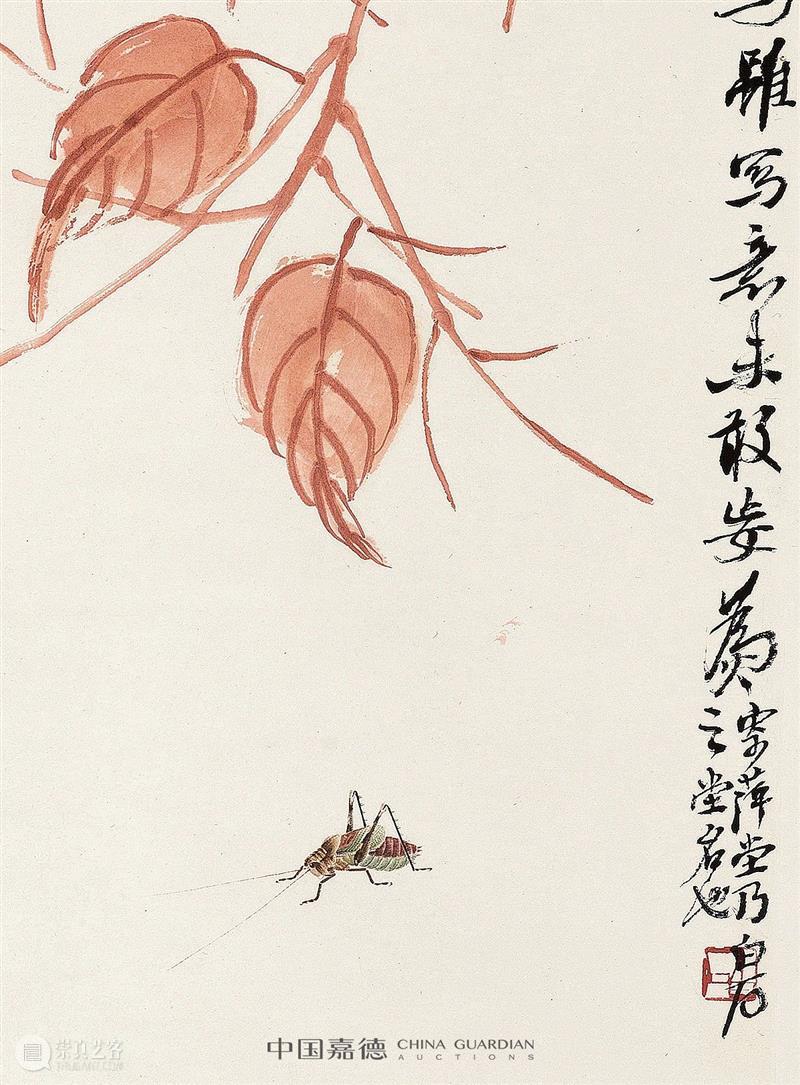 雖写意未敢妄爲
寄萍堂乃白石
之堂名也
中国嘉德 CHINA GUARDIAN
AUCTIONS
崇真艺客